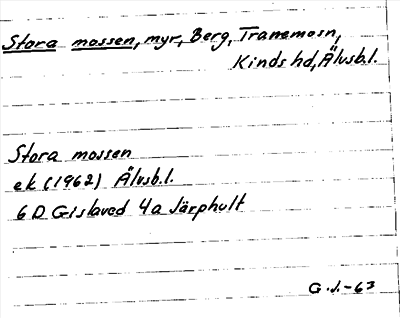 Stora mossen, myr, Berg, Tranemosn,
Kinds hd, Älvsb.l.
Stora mossen
ek (1962) Älvsb.l.
6 D Gislaved 4a Järphult
G.J.-63